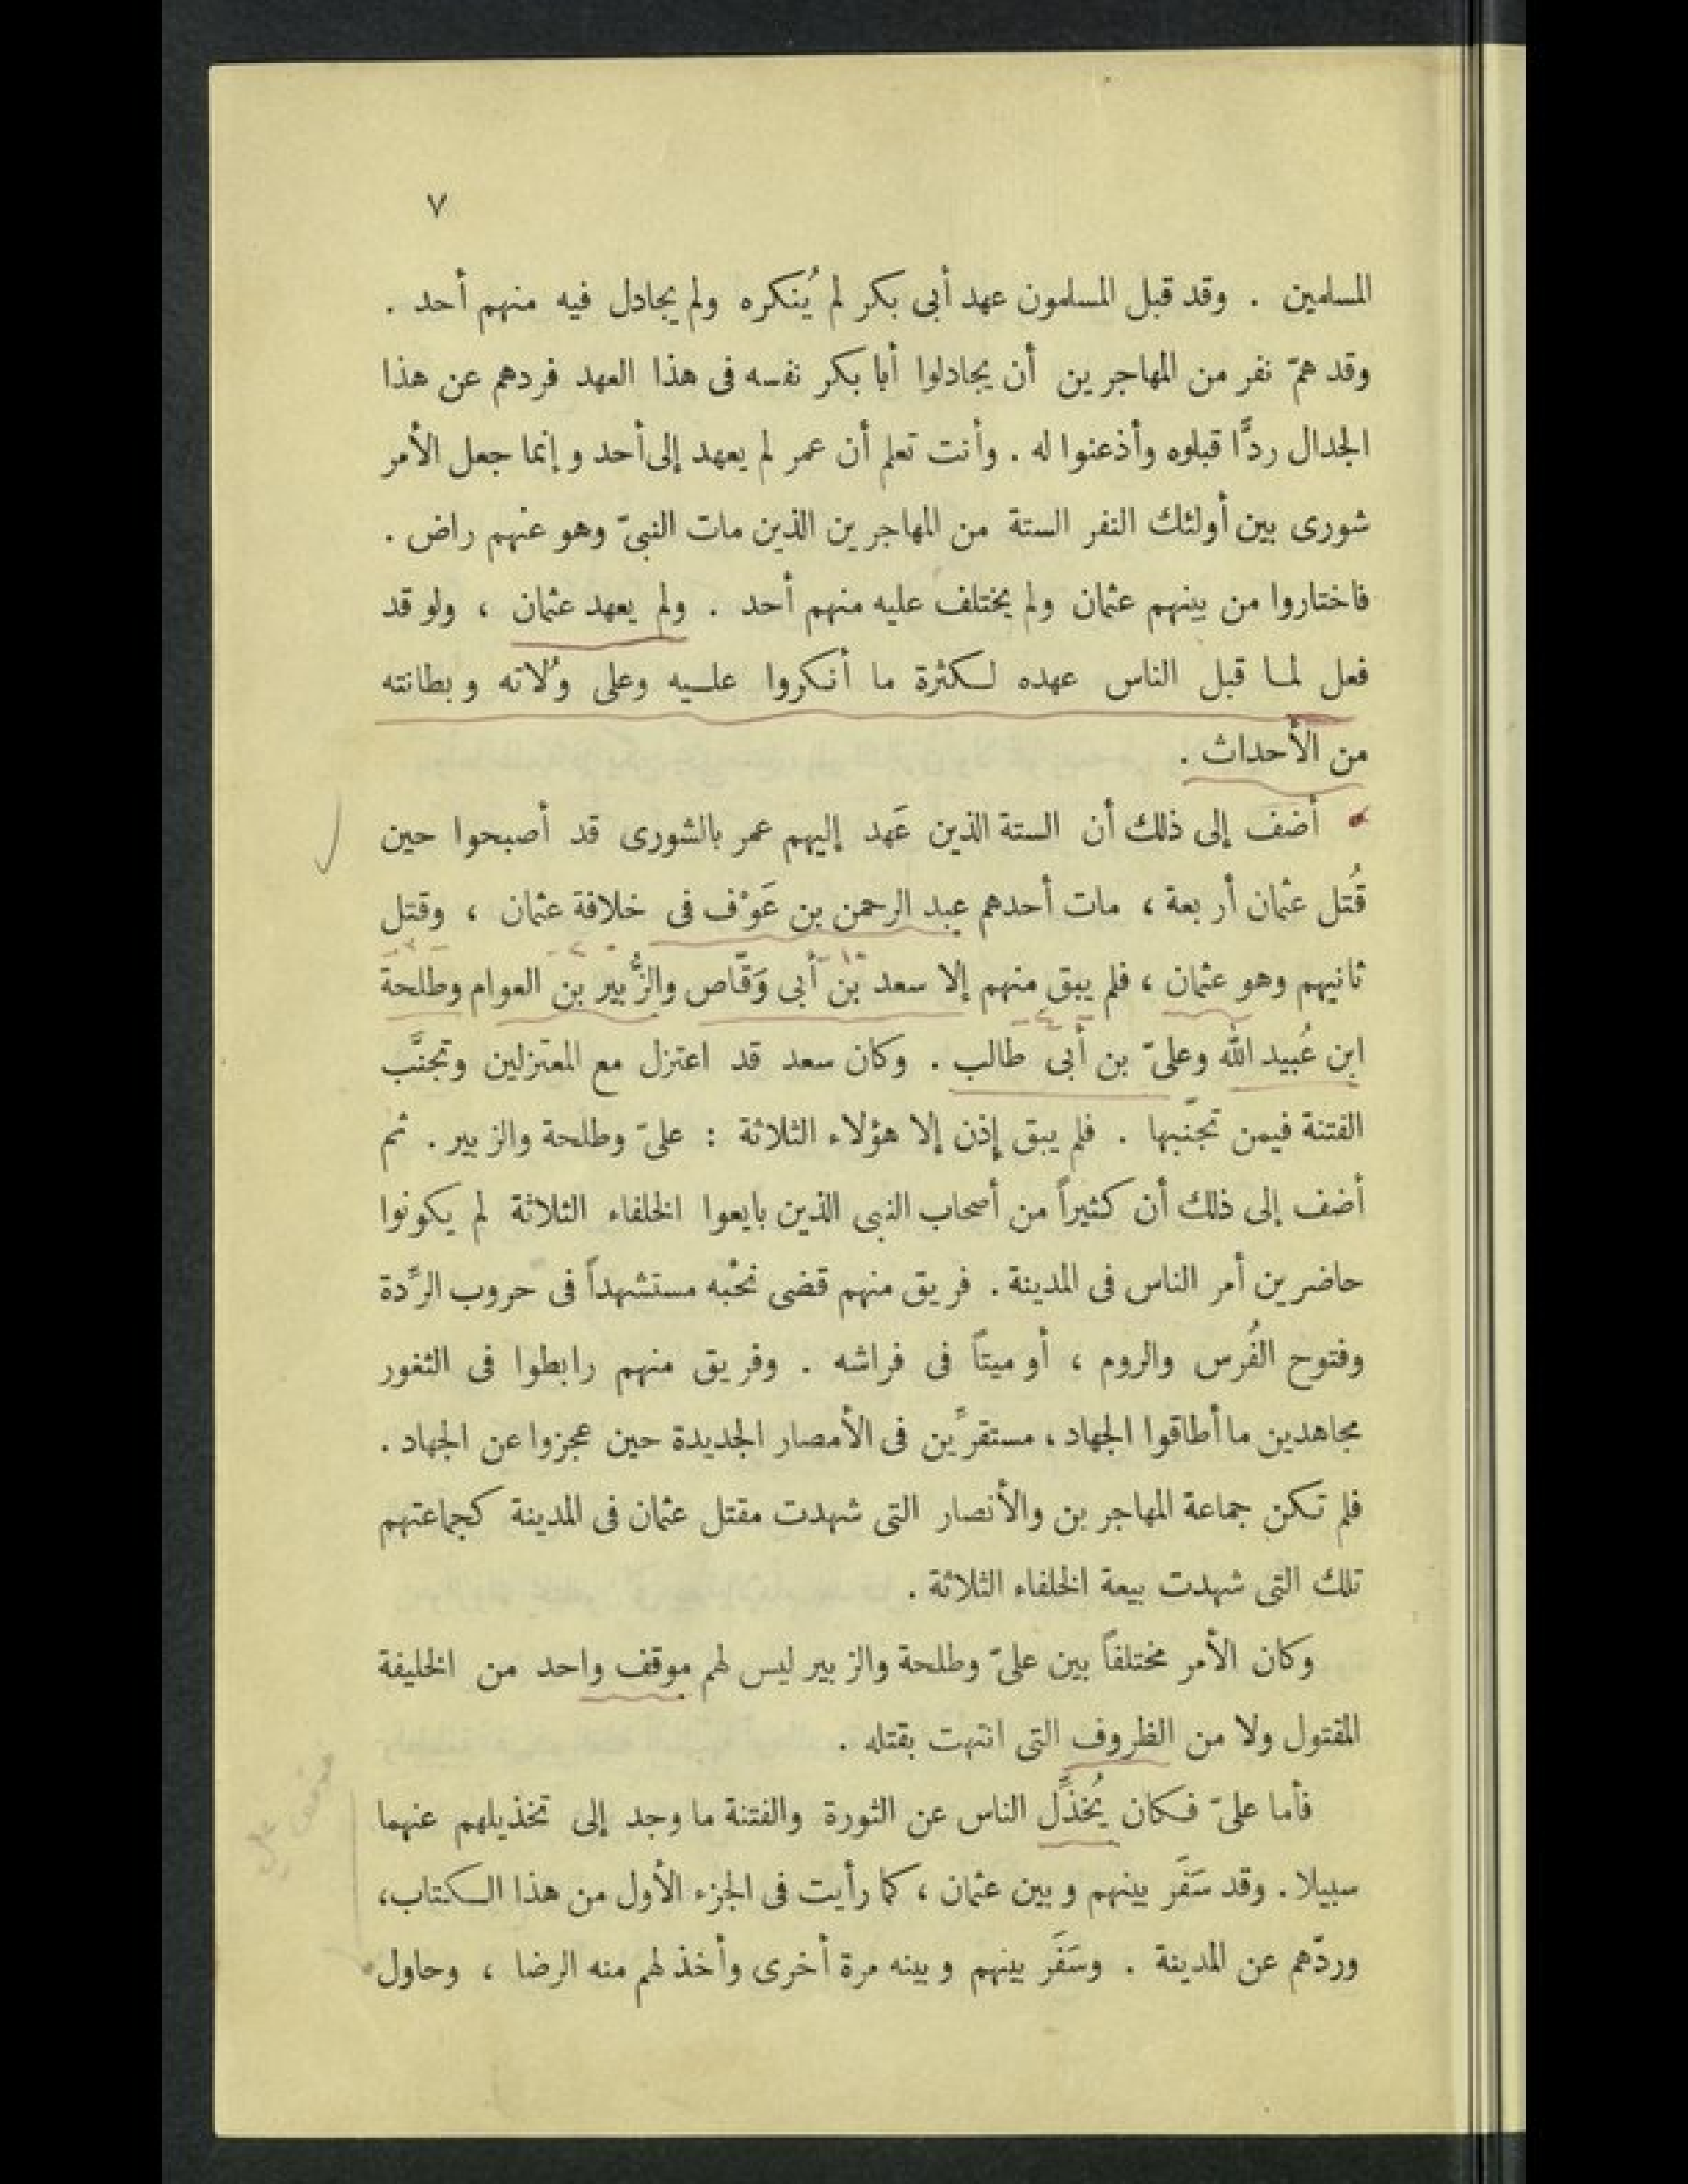 ٧
المسلمين . وقد قبل المسلمون عهد أبى بكر لم يُنكره ولم يجادل فيه منهم أحد .
وقد همّ نفر من المهاجرين أن يجادلوا أبا بكر نفسه فى هذا العهد فردهم عن هذا
الجدال ردًّا قبلوه وأذعنوا له . وأنت تعلم أن عمر لم يعهد إلى أحد وإنما جعل الأمر
شورى بين أولئك النفر الستة من المهاجرين الذين مات النبىّ وهو عنهم راض .
فاختاروا من بينهم عثمان ولم يختلف عليه منهم أحد . ولم يعهد عثمان ، ولو قد
فعل لما قبل الناس عهده لكثرة ما أنكروا عليه وعلى وُلاته وبطانته
من الأحداث .
أضف إلى ذلك أن الستة الذين عَهد إليهم عمر بالشورى قد أصبحوا حين
قُتل عثمان أربعة ، مات أحدهم عبد الرحمن بن عَوْف فى خلافة عثمان ، وقتل
ثانيهم وهو عثمان ، فلم يبق منهم إلا سعد بن أبى وَقّاص والزُّبير بن العوام وطلحة
ابن عُبيد الله وعلىّ بن أبى طالب . وكان سعد قد اعتزل مع المعتزلين وتجنَّب
الفتنة فيمن تجنّبها . فلم يبق إذن إلا هؤلاء الثلاثة : علىّ وطلحة والزبير . ثم
أضف إلى ذلك أن كثيراً من أصحاب النبى الذين بايعوا الخلفاء الثلاثة لم يكونوا
حاضرين أمر الناس فى المدينة . فريق منهم قضى نحْبه مستشهداً فى حروب الرِّدة
وفتوح الفُرس والروم ، أو ميتاً فى فراشه . وفريق منهم رابطوا فى الثغور
مجاهدين ما أطاقوا الجهاد ، مستقرِّين فى الأمصار الجديدة حين عجزوا عن الجهاد .
فلم تكن جماعة المهاجرين والأنصار التى شهدت مقتل عثمان فى المدينة كجماعتهم
تلك التى شهدت بيعة الخلفاء الثلاثة .
وكان الأمر مختلفاً بين علىّ وطلحة والزبير ليس لهم موقف واحد من الخليفة
المقتول ولا من الظروف التى انتهت بقتله .
فأما علىّ فكان يُخذِّل الناس عن الثورة والفتنة ما وجد إلى تخذيلهم عنهما
سبيلا . وقد سَفَر بينهم وبين عثمان ، كما رأيت فى الجزء الأول من هذا الكتاب ،
وردّهم عن المدينة . وسَفَر بينهم وبينه مرة أخرى وأخذ لهم منه الرضا ، وحاول